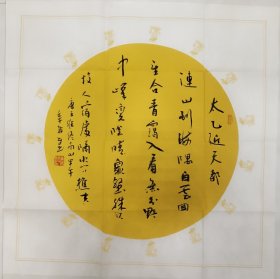 太乙近天都
連山到海隅白雲回
望合青靄入看無分野
中峰變陰晴衆壑殊欲
投人宿處隔水問樵夫
唐王維終南山